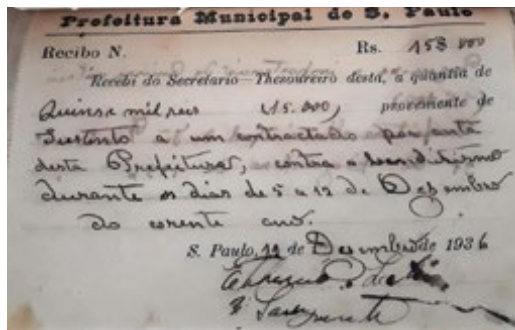 Prefeitura Municipal de S. Paulo
Recibo N. Rs. 15$000
Recebi do Secretario-Thesoureiro desta, a quantia de
Quinse mil reis (15.000), proveniente de
Sustento a um contractado por conta
desta Prefeitura, contra o
durante os dias de 5 a 12 de Dezembro
do corente ano.
S. Paulo, 12 de Dezembro de 1936